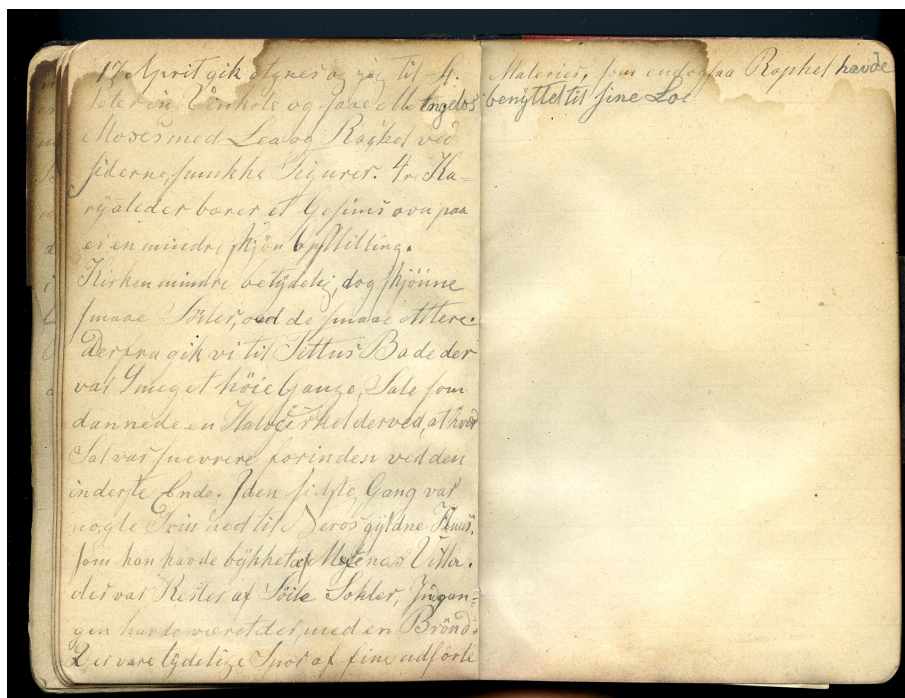 17 April gik Agnes og jeg til
Vinkole og saae M Angelos
Moses med Lea og Rachel ved
siderne, smukke Figurer. 4re Ka-
ryateder bærer et Gesims ovn paa
ei en mindre skjön opstilling.
Kirken mindre betydelig, dog skjönne
smaae Söiler, ved de smaae Altere.
Derfra gik vi til Tittus Bade der
var 9 meget höie Gange, Sale som
dannede en Halvcirkel derved, at hver
Sal var snevrere forinden ved den
inderste Ende. I den sidste Gang var
nogle Trin ned til Neros gyldne Huus,
som han havde bykket af Mecenas Villa.
der var Rester af Söile Sokler, Indgan-
gen havde været der, med en Brönd.
2 er vare tydelige Spor af fine udförte
Malerier, som endogsaa Raphel havde
benyttet til sine Loe